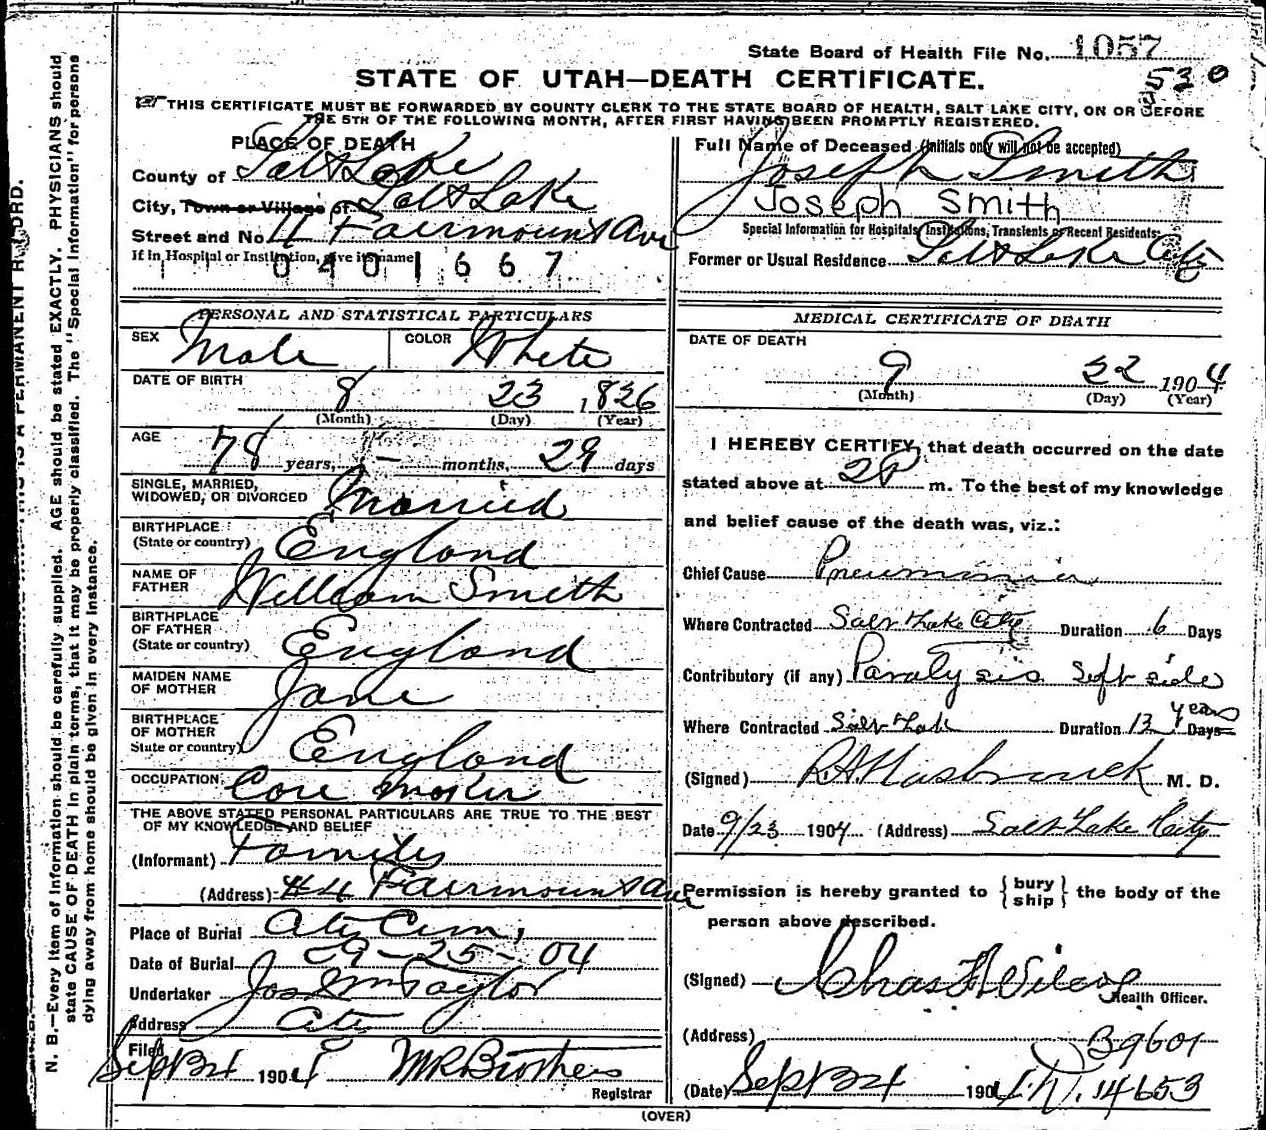 State Board of Health File No. 1057
530
STATE OF UTAH—DEATH CERTIFICATE.
THIS CERTIFICATE MUST BE FORWARDED BY COUNTY CLERK TO THE STATE BOARD OF HEALTH, SALT LAKE CITY, ON OR BEFORE
THE 5TH OF THE FOLLOWING MONTH, AFTER FIRST HAVING BEEN PROMPTLY REGISTERED.
PLACE OF DEATH
County of Salt Lake
City, Town or Village of Salt Lake
Street and No. 4 Fairmount Ave
If in Hospital or Institution, give its name
1 1 0 4 0 1 6 6 7
Full Name of Deceased (Initials only will not be accepted)
Joseph Smith
Joseph Smith
Special Information for Hospitals, Institutions, Transients or Recent Residents:
Former or Usual Residence Salt Lake City
PERSONAL AND STATISTICAL PARTICULARS
SEX Male COLOR White
DATE OF BIRTH
8 23 1826
(Month) (Day) (Year)
AGE
78 years, — months, 29 days
SINGLE, MARRIED,
WIDOWED, OR DIVORCED Married
BIRTHPLACE
(State or country) England
NAME OF
FATHER William Smith
BIRTHPLACE
OF FATHER
(State or country) England
MAIDEN NAME
OF MOTHER Jane
BIRTHPLACE
OF MOTHER
State or country) England
OCCUPATION Core Maker
THE ABOVE STATED PERSONAL PARTICULARS ARE TRUE TO THE BEST
OF MY KNOWLEDGE AND BELIEF
(Informant)
(Address) #4 Fairmount Ave
Place of Burial City Cem,
Date of Burial 9-25-04
Undertaker Jos Wm Taylor
Address City
Filed Sept 24 1904
Registrar
MEDICAL CERTIFICATE OF DEATH
DATE OF DEATH
9 22 1904
(Month) (Day) (Year)
I HEREBY CERTIFY, that death occurred on the date
stated above at 2 P m. To the best of my knowledge
and belief cause of the death was, viz.:
Chief Cause Pneumonia
Where Contracted Salt Lake City Duration 6 Days
Contributory (if any) Paralysis left side
Where Contracted Salt Lake Duration 12 years Days
(Signed) R A Hasbrouck M. D.
Date 9/23 1904 (Address) Salt Lake City
Permission is hereby granted to { bury
ship } the body of the
person above described.
(Signed) Chas F Wilcox
Health Officer.
(Address) B9601
(Date) Sept 24 1904 14653
(OVER)
N. B.—Every item of information should be carefully supplied. AGE should be stated EXACTLY. PHYSICIANS should
state CAUSE OF DEATH in plain terms, that it may be properly classified. The "Special Information" for persons
dying away from home should be given in every instance.